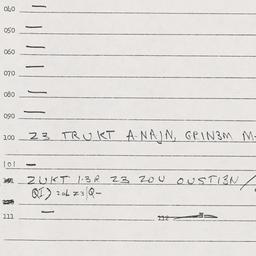 060 —
050 —
060 —
070 —
080 —
090 —
100 23 TRUKT A.NAJN, GPIN3M M-
101 —
ZUKT 1.3R Z3 ZOU OUSTI3N /
111 —